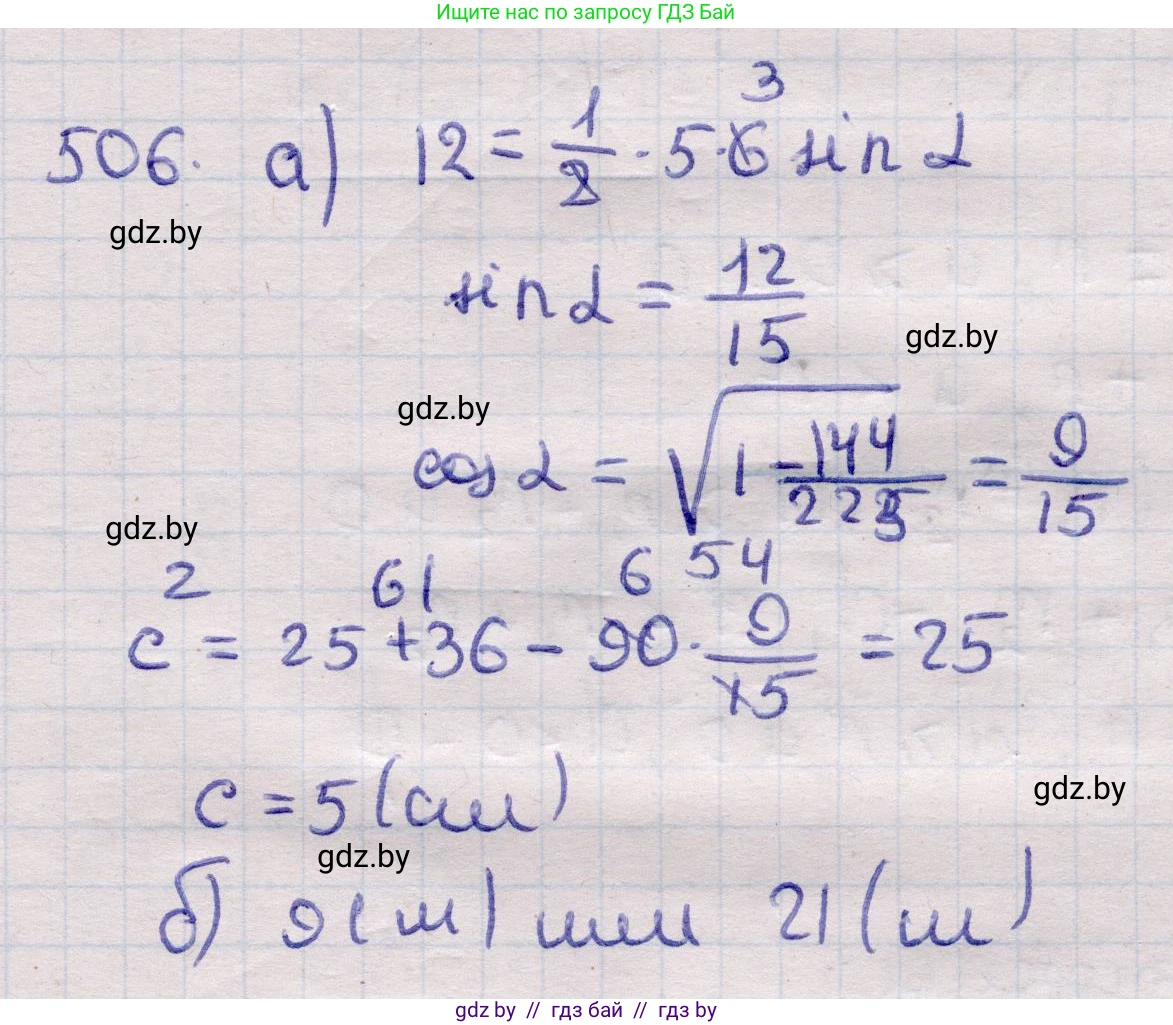 Ищите нас по запросу ГДЗ Бай
506. а) 12 = 1/2 · 5 · 6 sin α
3
gdz.by
sin α = 12/15
gdz.by
gdz.by
cos α = √(1 - 144/225) = 9/15
gdz.by
61 6 54
c² = 25 + 36 - 90 · 9/15 = 25
c = 5 (см)
gdz.by
gdz.by
б) 9 (м) или 21 (м)
gdz.by // гдз бай // гдз by